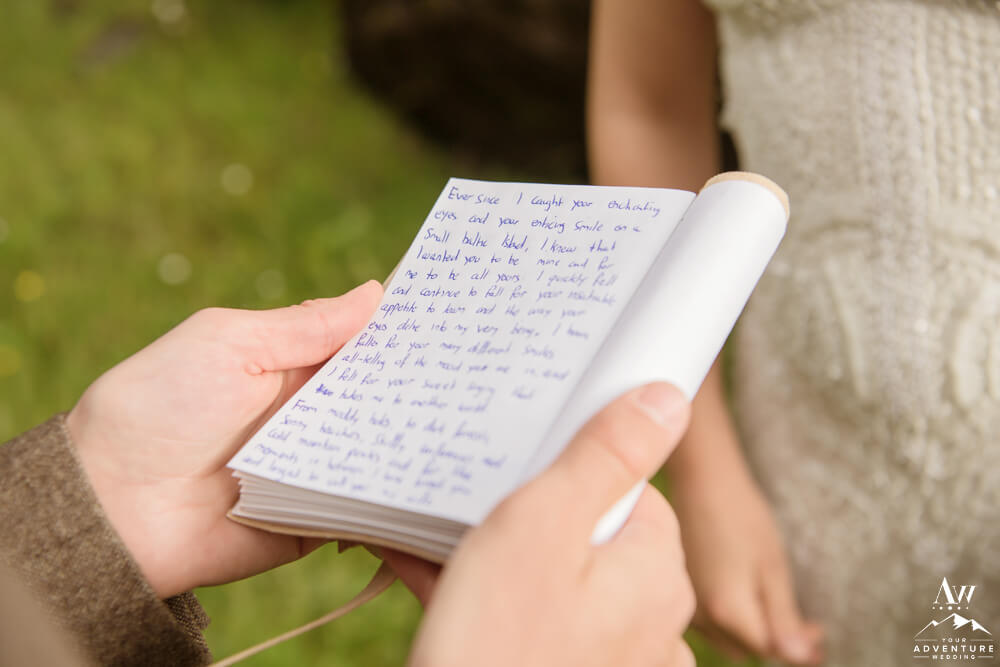 Ever since I caught your enchanting
eyes and your enticing smile on a
Small baltic Island, I knew that
I wanted you to be mine and for
me to be all yours. I quickly fell
and continue to fall for your insatiable
appetite to learn and the way your
eyes delve into my very being. I have
fallen for your many different smiles
all-telling of the mood your are in and
I fell for your sweet singing that
takes me to another world.
From muddy to dark forests,
Sunny beaches, Stuffy and
cold mountain peaks and for the
moments in between I have loved you
and longed to call you my wife
AW
YOUR
ADVENTURE
WEDDING